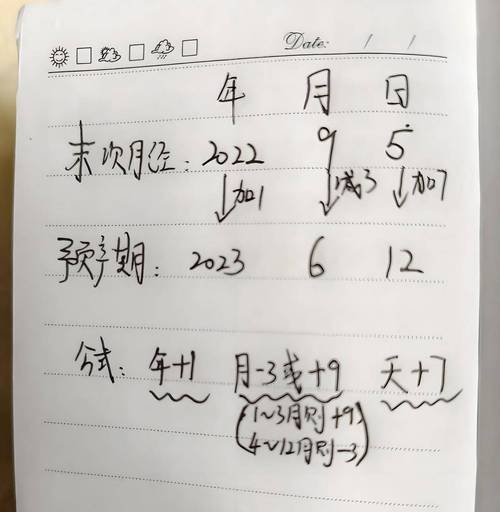 Date: / /
年 月 日
末次月经: 2022 9 5
↓加1 ↓减3 ↓加7
预产期: 2023 6 12
公式: 年+1 月-3或+9 天+7
(1~3月则+9)
(4~12月则-3)